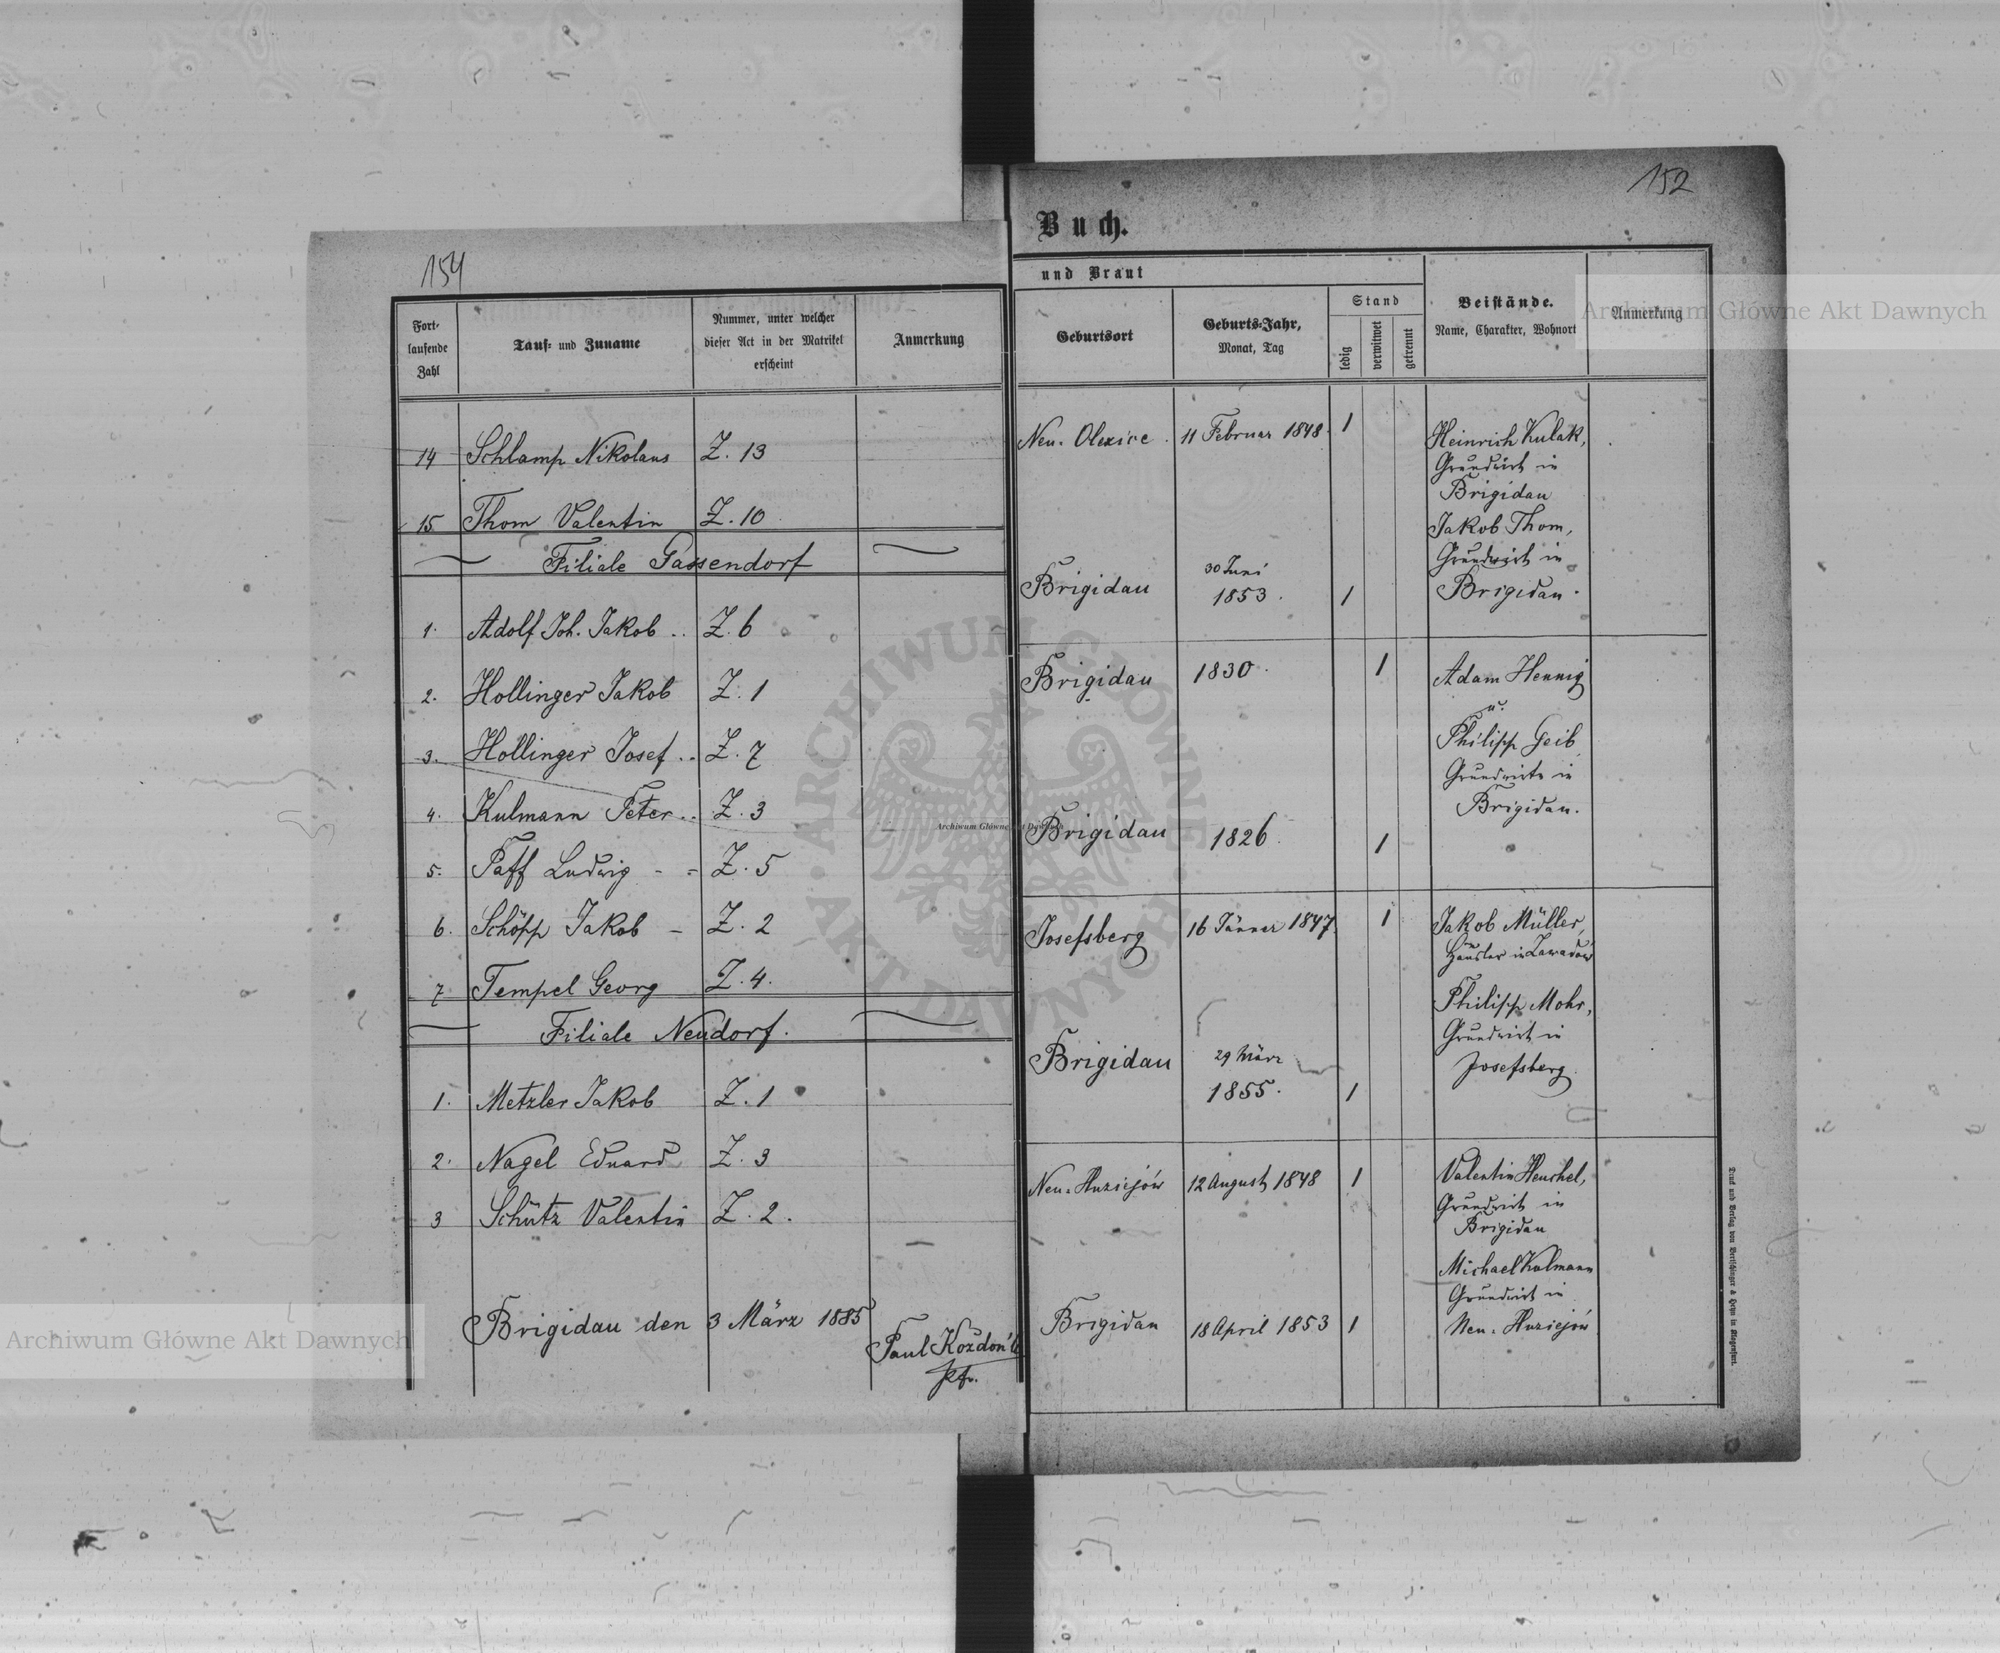 154
Fort-
laufende
Zahl
Tauf- und Zuname
Nummer, unter welcher
dieser Act in der Matrikel
erscheint
Anmerkung
14 Schlamp Nikolaus Z. 13
15 Thom Valentin Z. 10
Filiale Gassendorf
1. Adolf Joh. Jakob .. Z. 6
2. Hollinger Jakob Z. 1
3. Hollinger Josef .. Z. 7
4. Kulmann Peter .. Z. 3
5. Paff Ludwig - = Z. 5
6. Schöpp Jakob - Z. 2
7 Tempel Georg Z. 4.
Filiale Neudorf.
1. Metzler Jakob Z. 1
2. Nagel Eduard Z. 3
3 Schütz Valentin Z. 2.
Brigidau den 3 März 1885
Paul Kozdoń
152
Buch.
und Braut
Geburtsort
Geburts-Jahr,
Monat, Tag
Stand
ledig
verwitwet
getrennt
Beistände.
Name, Charakter, Wohnort
Anmerkung
Neu-Olexice. 11 Februar 1848. 1
Heinrich Kulak,
Grundwirt in
Brigidau
Jakob Thom,
Grundwirt in
Brigidau.
Brigidau 30 Juni
1853. 1
Brigidau 1830. 1
Adam Hennig
u.
Philipp Geib,
Grundwirte in
Brigidau.
Brigidau 1826. 1
Josefsberg 16 Jänner 1847. 1
Jakob Müller,
Häusler in Zawadów
Philipp Mohr,
Grundwirt in
Josefsberg.
Brigidau 29 März
1855. 1
Neu-Huziejów 12 August 1848 1
Valentin Heuchel,
Grundwirt in
Brigidau
Michael Kulmann
Grundwirt in
Neu-Huziejów
Brigidau 18 April 1853 1
Druck und Verlag von Bertschinger & Heyn in Klagenfurt.
Archiwum Główne Akt Dawnych
Archiwum Główne Akt Dawnych
Archiwum Główne Akt Dawnych
ARCHIWUM GŁÓWNE AKT DAWNYCH